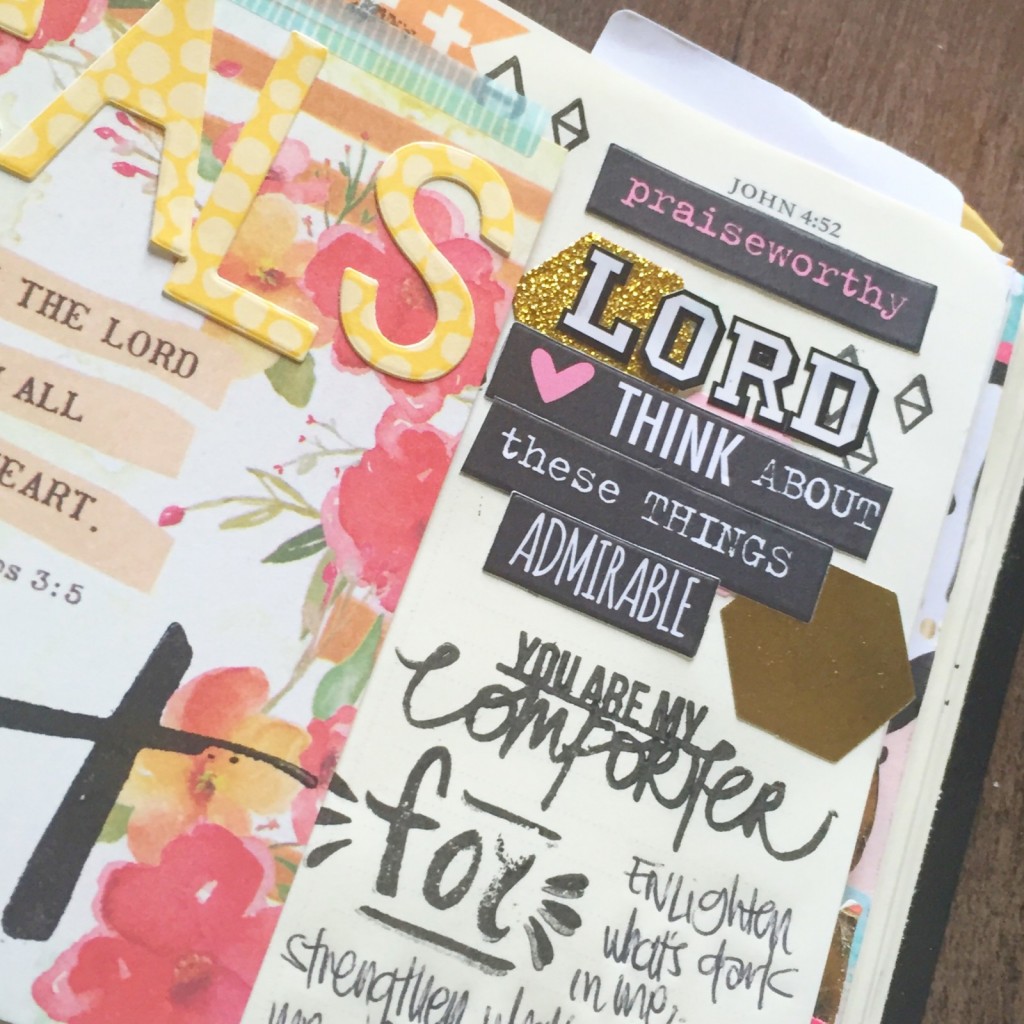 ALS
THE LORD
ALL
EART.
3:5
JOHN 4:52
praiseworthy
LORD
THINK ABOUT
these THINGS
ADMIRABLE
YOU ARE MY
COMFORTER
for
ENLIGHTEN
what's dark
in me,
strengthen